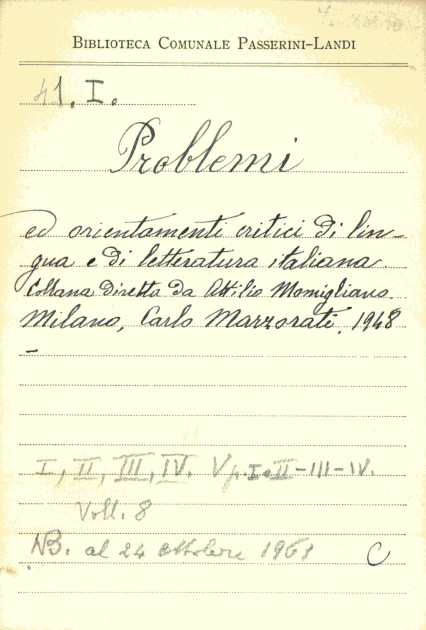 BIBLIOTECA COMUNALE PASSERINI-LANDI
41. I.
Problemi
ed orientamenti critici di lin-
gua e di letteratura italiana.
Collana diretta da Attilio Momigliano
Milano, Carlo Marzorati, 1948
-
I, II, III, IV. V p. I e II-III-IV.
Voll. 8
NB. al 24 ottobre 1961 C